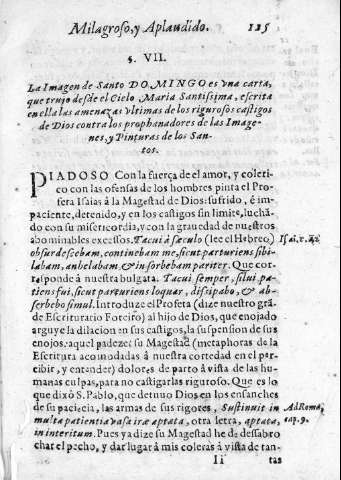 Milagroso, y Aplaudido. 125
§. VII.
La Imagen de Santo DOMINGO es vna carta,
que trujo desde el Cielo Maria Santissima, escrita
en ella las amenazas vltimas de los rigurosos castigos
de Dios contra los prophanadores de las Image-
nes, y Pinturas de los San-
tos.
PIADOSO Con la fuerça de el amor, y coleri-
co con las ofensas de los hombres pinta el Pro-
feta Isaias â la Magestad de Dios: sufrido, é im-
paciente, detenido, y en los castigos sin limite, luchâ-
do con su misericordia, y con la gravedad de nuestros
abominables excessos. Tacui à sæculo (lee el Hebreo) Isai. c. 42
obsurdescebam, continebam me, sicut parturiens sibi-
labam, anhelabam, & insorbebam pariter. Que cor-
responde â nuestra bulgata. Tacui semper, silui pa-
tiens fui, sicut parturiens loquar, dissipabo, & ab-
sorbebo simul. Introduze el Profeta (dize nuestro grâ-
de Escriturario Foreiro) al hijo de Dios, que enojado
arguye la dilacion en sus castigos, la suspension de sus
enojos: aquel padezer su Magestad (metaphoras de la
Escritura acomodadas â nuestra cortedad en el per-
cibir, y entander) dolores de parto â vista de las hu-
manas culpas, para no castigarlas riguroso. Que es lo
que dixô S. Pablo, que detuvo Dios en los ensanches
de su paciecia, las armas de sus rigores, Sustinuit in Ad Roma.
multa patientia vasa iræ aptata, otra letra, aptata, cap. 9.
in interitum. Pues ya dize su Magestad he de desabro
char el pecho, y dar lugar â mis coleras â vista de tan-
Ii tas